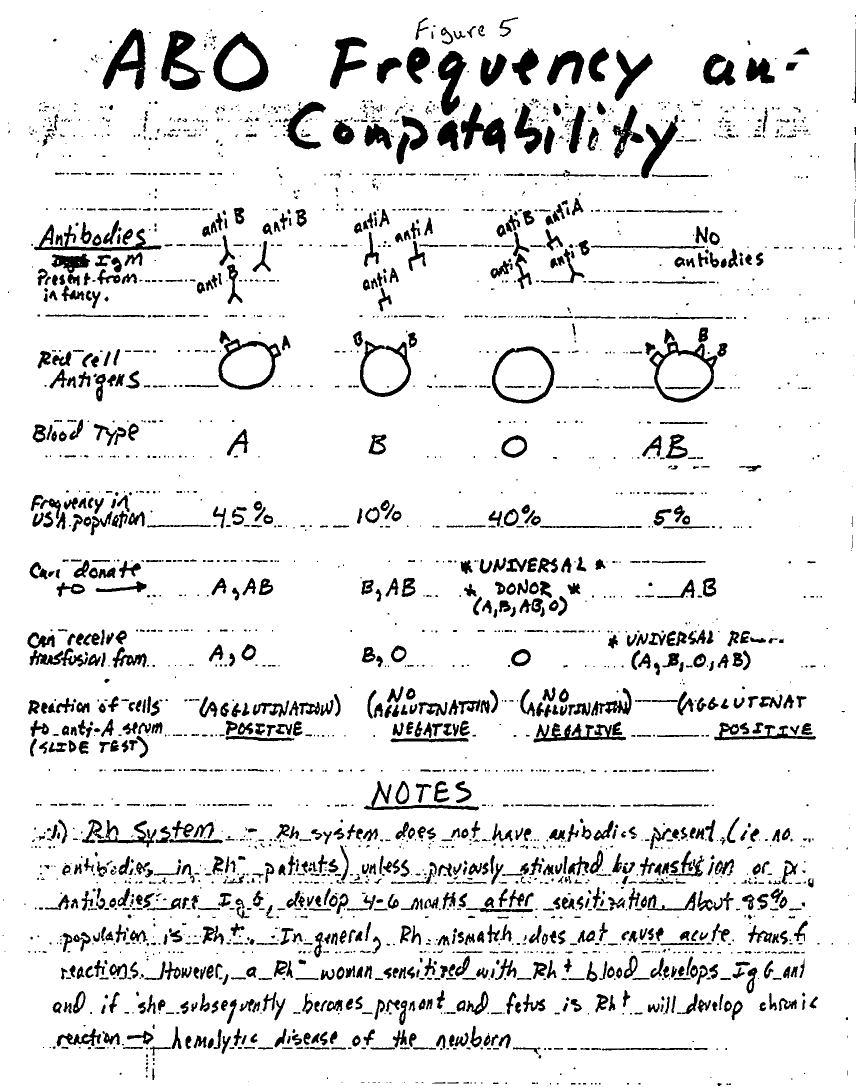 Figure 5
ABO Frequency an
Compatability
Antibodies
IgM
Present from
infancy.
anti B anti B anti B
anti A anti A anti A
anti B anti A anti A anti B
No
antibodies
Red Cell
Antigens
A A
B B
A A B B
Blood Type A B O AB
Frequency in
USA population 45% 10% 40% 5%
Can donate
to → A, AB B, AB * UNIVERSAL * * DONOR * (A, B, AB, O) AB
Can receive
transfusion from A, O B, O O * UNIVERSAL RE (A, B, O, AB)
Reaction of cells (AGGLUTINATION) (NO AGGLUTINATION) (NO AGGLUTINATION) (AGGLUTINAT
to anti-A serum POSITIVE NEGATIVE NEGATIVE POSITIVE
(SLIDE TEST)
NOTES
1.) Rh System - Rh system does not have antibodies present (ie no
antibodies in Rh- patients) unless previously stimulated by transfusion or pr
Antibodies are IgG, develop 4-6 months after sensitization. About 85%
population is Rh+. In general, Rh mismatch does not cause acute transf
reactions. However, a Rh- woman sensitized with Rh+ blood develops IgG ant
and if she subsequently becomes pregnant and fetus is Rh+ will develop chronic
reaction → hemolytic disease of the newborn